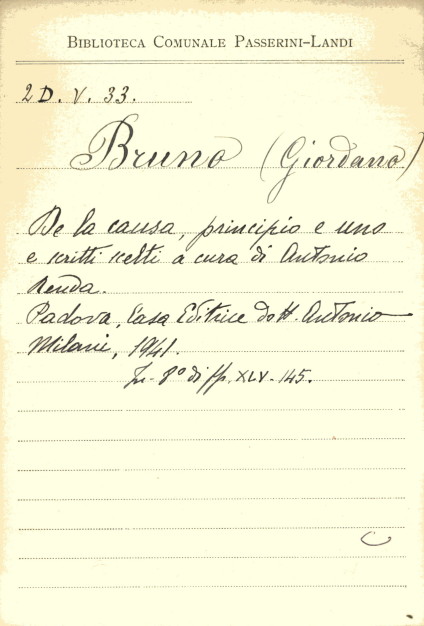 BIBLIOTECA COMUNALE PASSERINI-LANDI
2 D. V. 33.
Bruno (Giordano)
De la causa, principio e uno
e scritti scelti a cura di Antonio
Renda.
Padova, Casa Editrice dott. Antonio
Milani, 1941.
In-8º di pp. XLV-145.